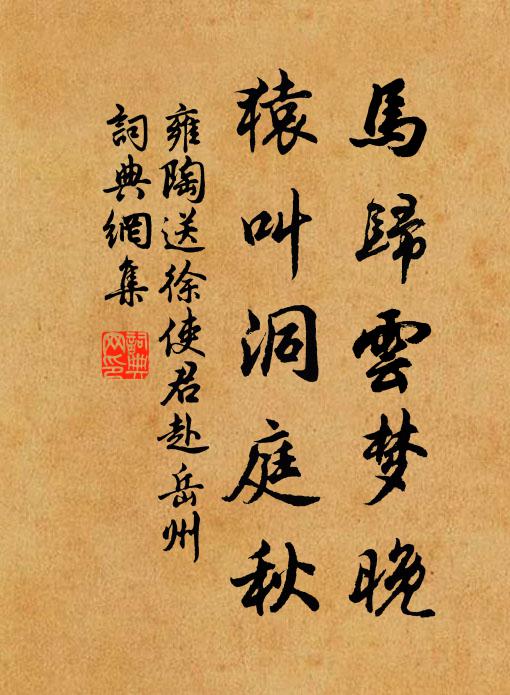 馬歸雲梦晚
猿叫洞庭秋
雍陶送徐使君赴岳州
詞典網集
詞典
网印